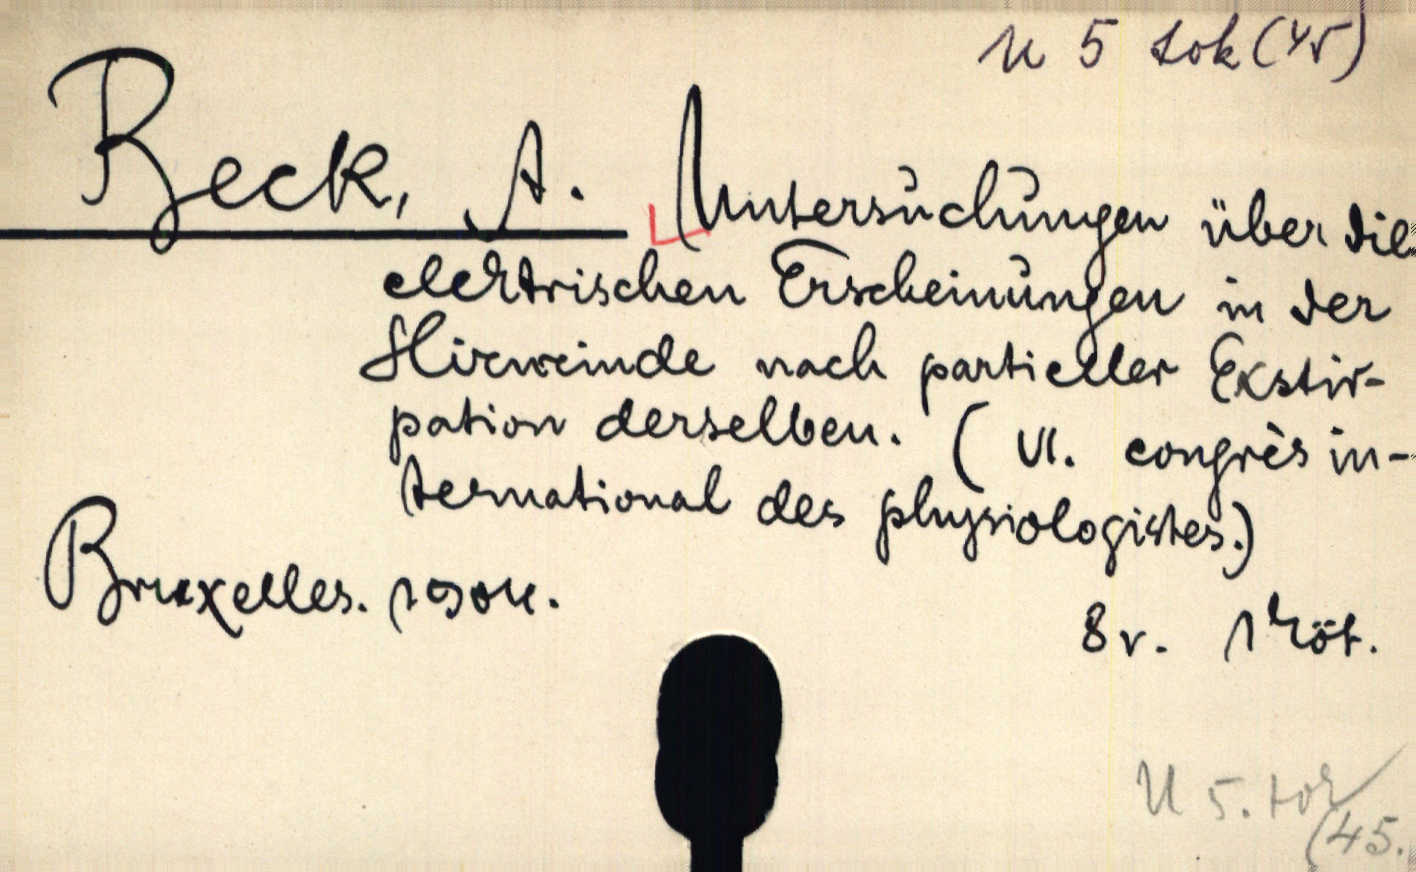 U 5 tok (45)
Beck, A. Untersuchungen über die
elektrischen Erscheinungen in der
Hirnrinde nach partieller Exstir-
pation derselben. (VI. congrès in-
ternational des physiologistes.)
Bruxelles. 1904.
8r. 1 köt.
U 5. tok
(45.